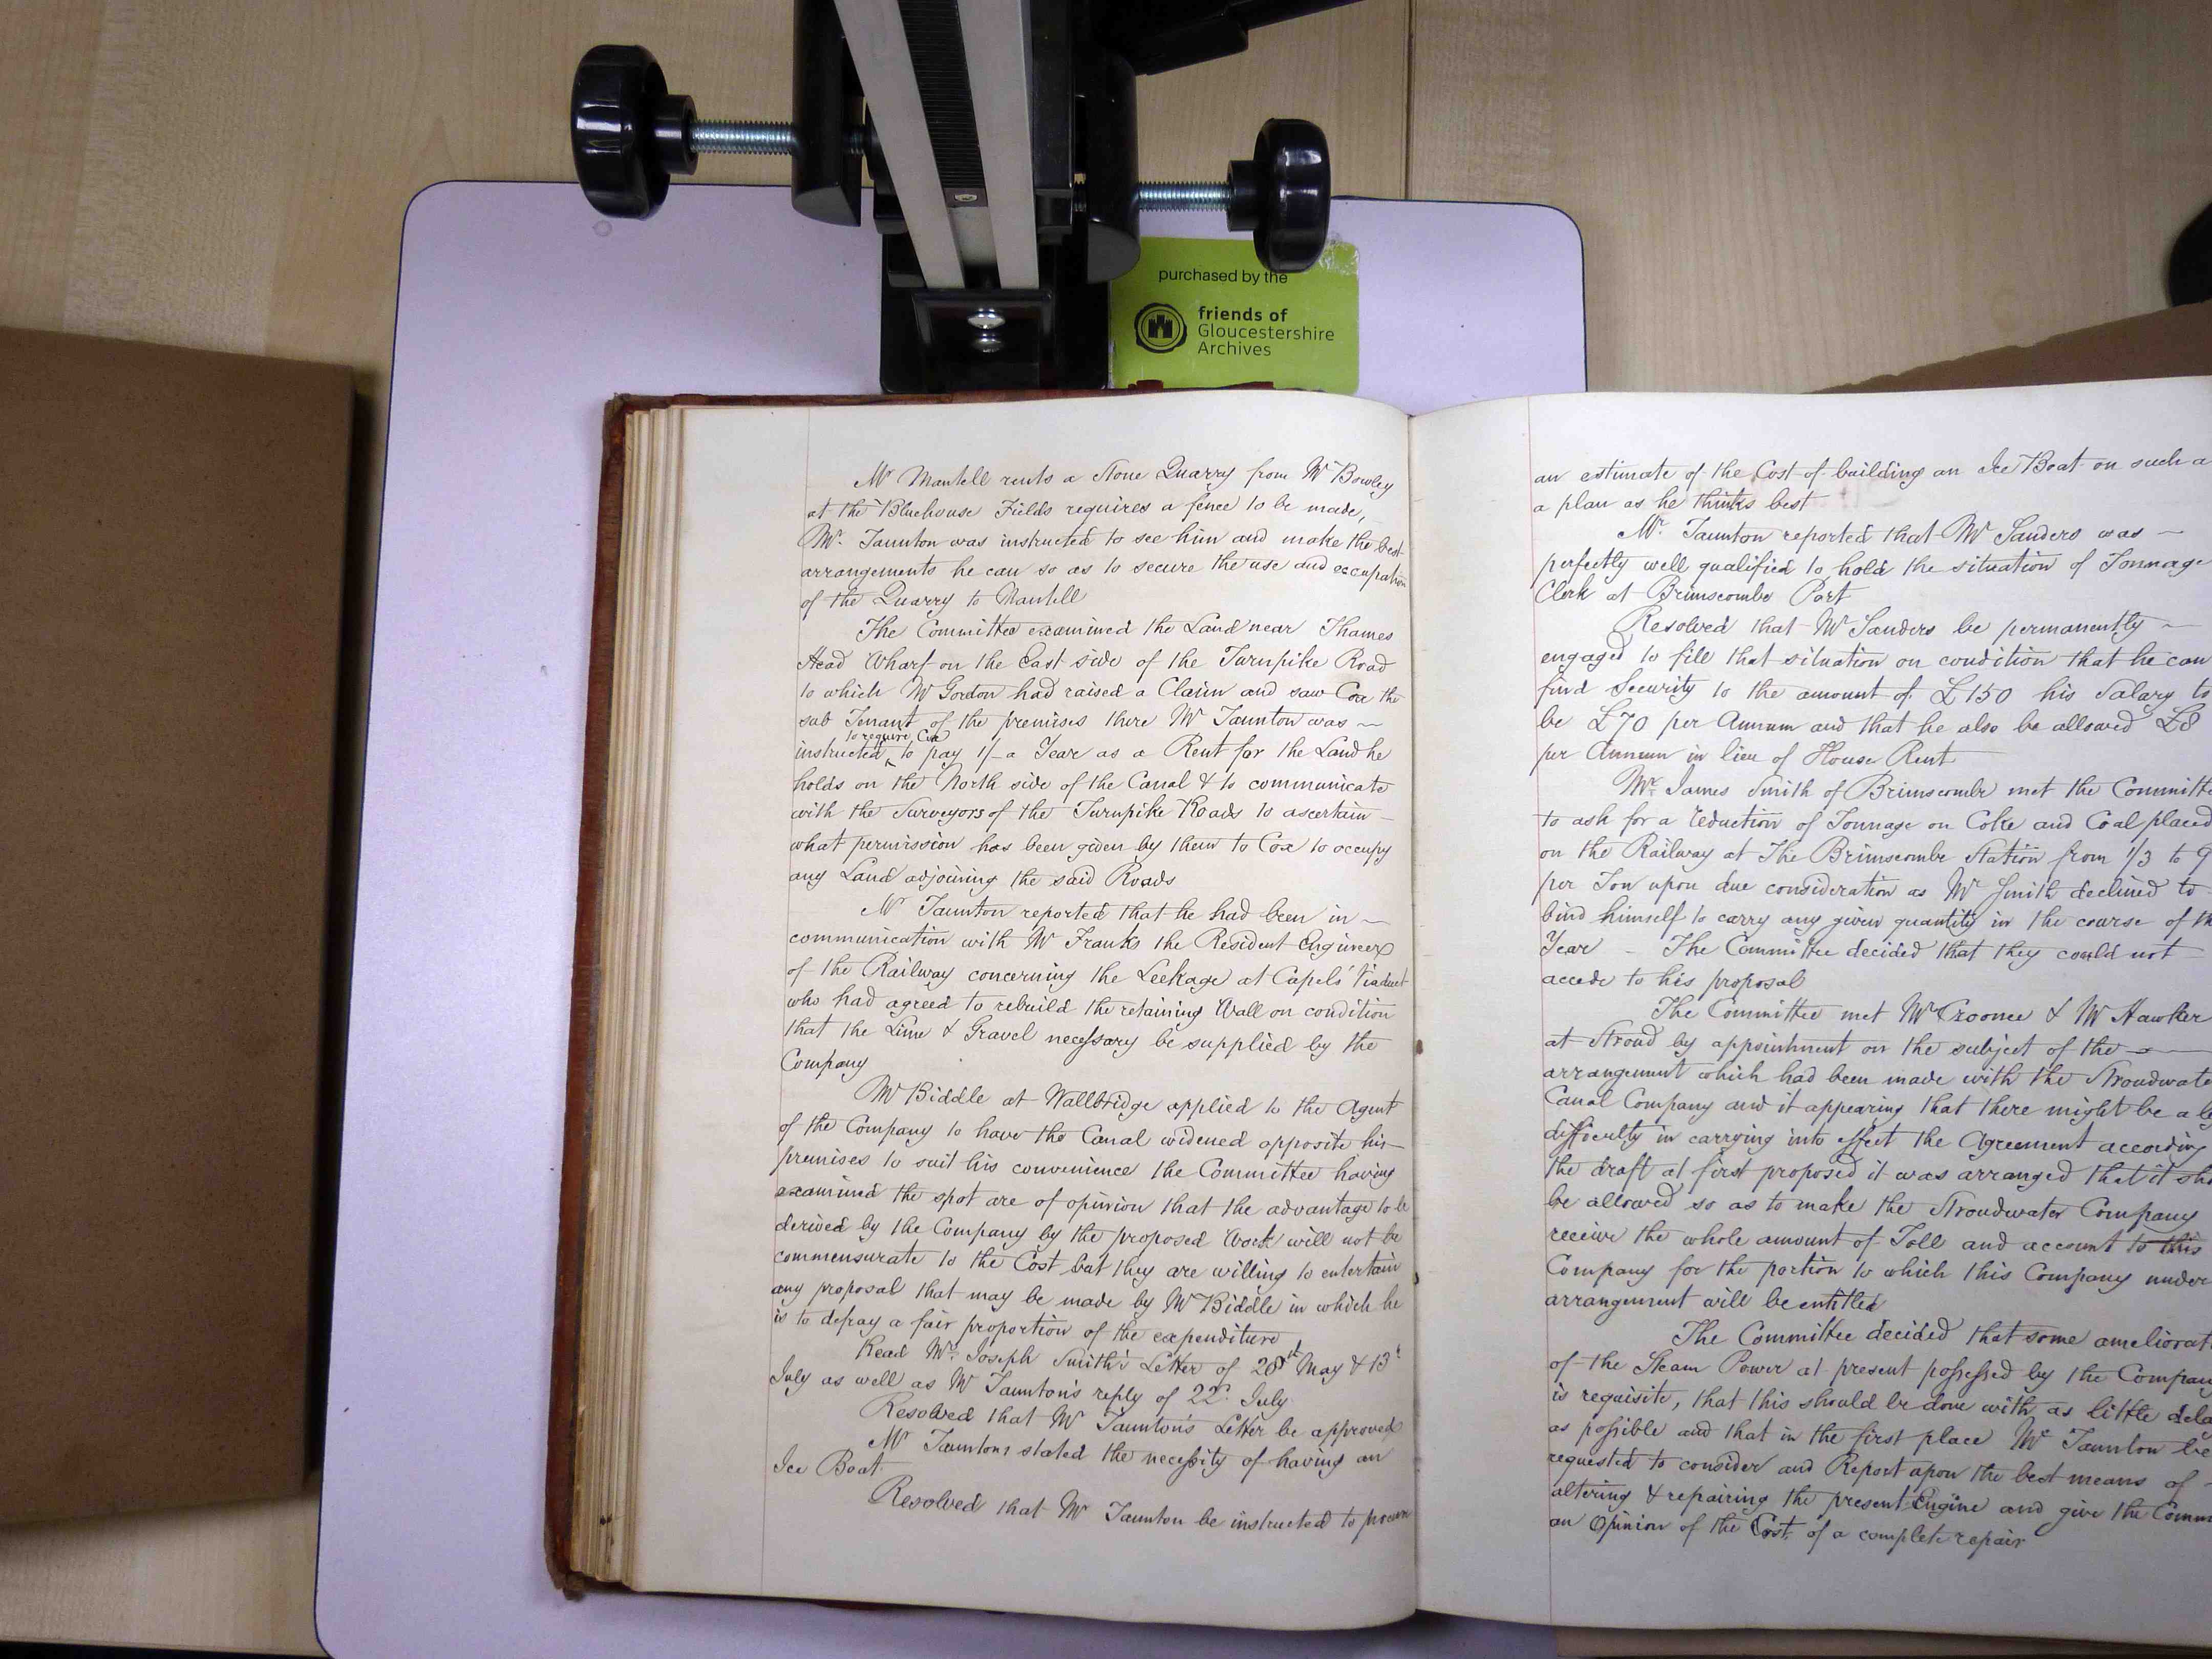 purchased by the
friends of
Gloucestershire
Archives
Mr Mantell rents a Stone Quarry from Mr Bowley
at the Bluehouse Fields requires a fence to be made,
Mr. Taunton was instructed to see him and make the best
arrangements he can so as to secure the use and occupation
of the Quarry to Mantell
The Committee examined the Land near Thames
Head Wharf on the East side of the Turnpike Road
to which Mr Gordon had raised a Claim and saw Cox the
sub Tenant of the premises there Mr Taunton was
to require Cox
instructed to pay 1/- a Year as a Rent for the Land he
holds on the North side of the Canal & to communicate
with the Surveyors of the Turnpike Roads to ascertain
what permission has been given by them to Cox to occupy
any Land adjoining the said Roads
Mr Taunton reported that he had been in
communication with Mr Franks the Resident Engineer
of the Railway concerning the Leekage at Capels' Viaduct
who had agreed to rebuild the retaining Wall on condition
that the Lime & Gravel necessary be supplied by the
Company
Mr Biddle at Wallbridge applied to the Agent
of the Company to have the Canal widened opposite his
premises to suit his convenience the Committee having
examined the spot are of opinion that the advantage to be
derived by the Company by the proposed Work will not be
commensurate to the Cost but they are willing to entertain
any proposal that may be made by Mr Biddle in which he
is to defray a fair proportion of the expenditure
Read Mr. Joseph Smith's Letter of 28th May & 13t
July as well as Mr Taunton's reply of 22d July
Resolved that Mr Taunton's Letter be approved
Mr Tauntons stated the necessity of having an
Ice Boat
Resolved that Mr Taunton be instructed to procure
an estimate of the Cost of building an Ice Boat on such a
a plan as he thinks best
Mr. Taunton reported that Mr Sanders was
perfectly well qualified to hold the situation of Tonnage
Clerk at Brimscombe Port
Resolved that Mr Sanders be permanently
engaged to fill that situation on condition that he can
find Security to the amount of £150 his Salary to
be £70 per Annum and that he also be allowed £8
per Annum in lieu of House Rent
Mr. James Smith of Brimscombe met the Committe
to ask for a reduction of Tonnage on Coke and Coal placed
on the Railway at The Brimscombe Station from 1/3 to 9
per Ton upon due consideration as Mr Smith declined to
bind himself to carry any given quantity in the course of th
Year - The Committee decided that they could not
accede to his proposal
The Committee met Mr Croome & Mr Hawker
at Stroud by appointment on the subject of the
arrangement which had been made with the Stroudwate
Canal Company and it appearing that there might be a le
difficulty in carrying into effect the Agreement according
the draft at first proposed it was arranged that it sho
be allowed so as to make the Stroudwater Company
receive the whole amount of Toll and account to this
Company for the portion to which this Company under
arrangement will be entitled
The Committee decided that some ameliorat
of the Steam Power at present possessed by the Compan
is requisite, that this should be done with as little dela
as possible and that in the first place Mr Taunton be
requested to consider and Report upon the best means of
altering & repairing the present Engine and give the Comm
an Opinion of the Cost of a complete repair